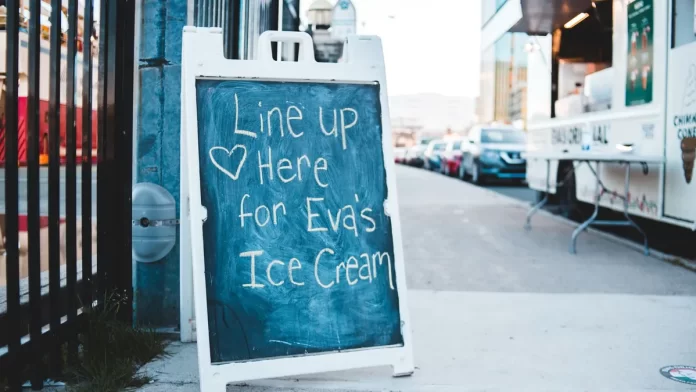 Line up
♡ Here
for Eva's
Ice Cream